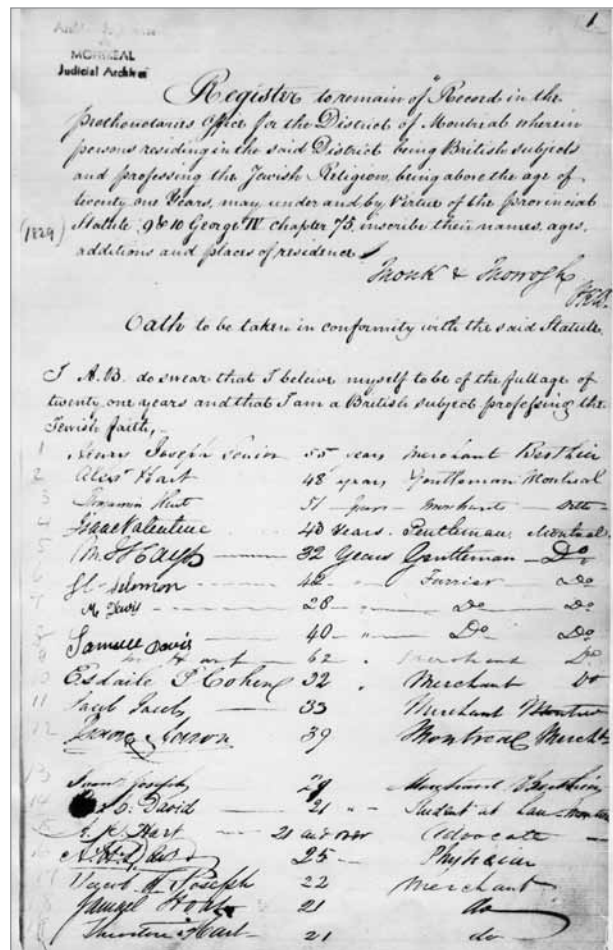 1
MONTREAL
Judicial Archives
Register to remain of Record in the
prothonotaries Office for the District of Montreal wherein
persons residing in the said District being British subjects
and professing the Jewish Religion, being above the age of
twenty one Years, may under and by Virtue of the provincial
(1829) Statute, 9 & 10 George IV chapter 75, inscribe their names, ages,
additions and places of residence
Monk & Morrogh
Oath to be taken in conformity with the said Statute
I A.B. do swear that I beleive myself to be of the full age of
twenty one years and that I am a British subject professing the
Jewish faith,
1 Henry Joseph Senior 55 years Merchant Berthier
2 Alexr Hart 48 years Gentleman Montreal
3 Benjamin Hart 51 years Merchant ditto
4 Isaac Valentine 43 Years Gentleman Montreal
5 M Hays 32 Years Gentleman Do
6 Solomon 42 " Furrier Do
7 M. 28 " Do Do
8 Samuel Davis 40 " Do Do
9 Hart 62 " Merchant Do
10 Esdaile P. Cohen 32 " Merchant Do
11 Jacob Jacobs 33 Merchant Montreal
12 Aaron 39 Montreal Mercht
13 Joseph 29 Merchant Berthier
14 David 21 " Student at Law
15 Hart 21 and over Advocate
16 David 25 Physician
17 Joseph 22 Merchant
18 Samuel 21 do
Theodore Hart 21 do